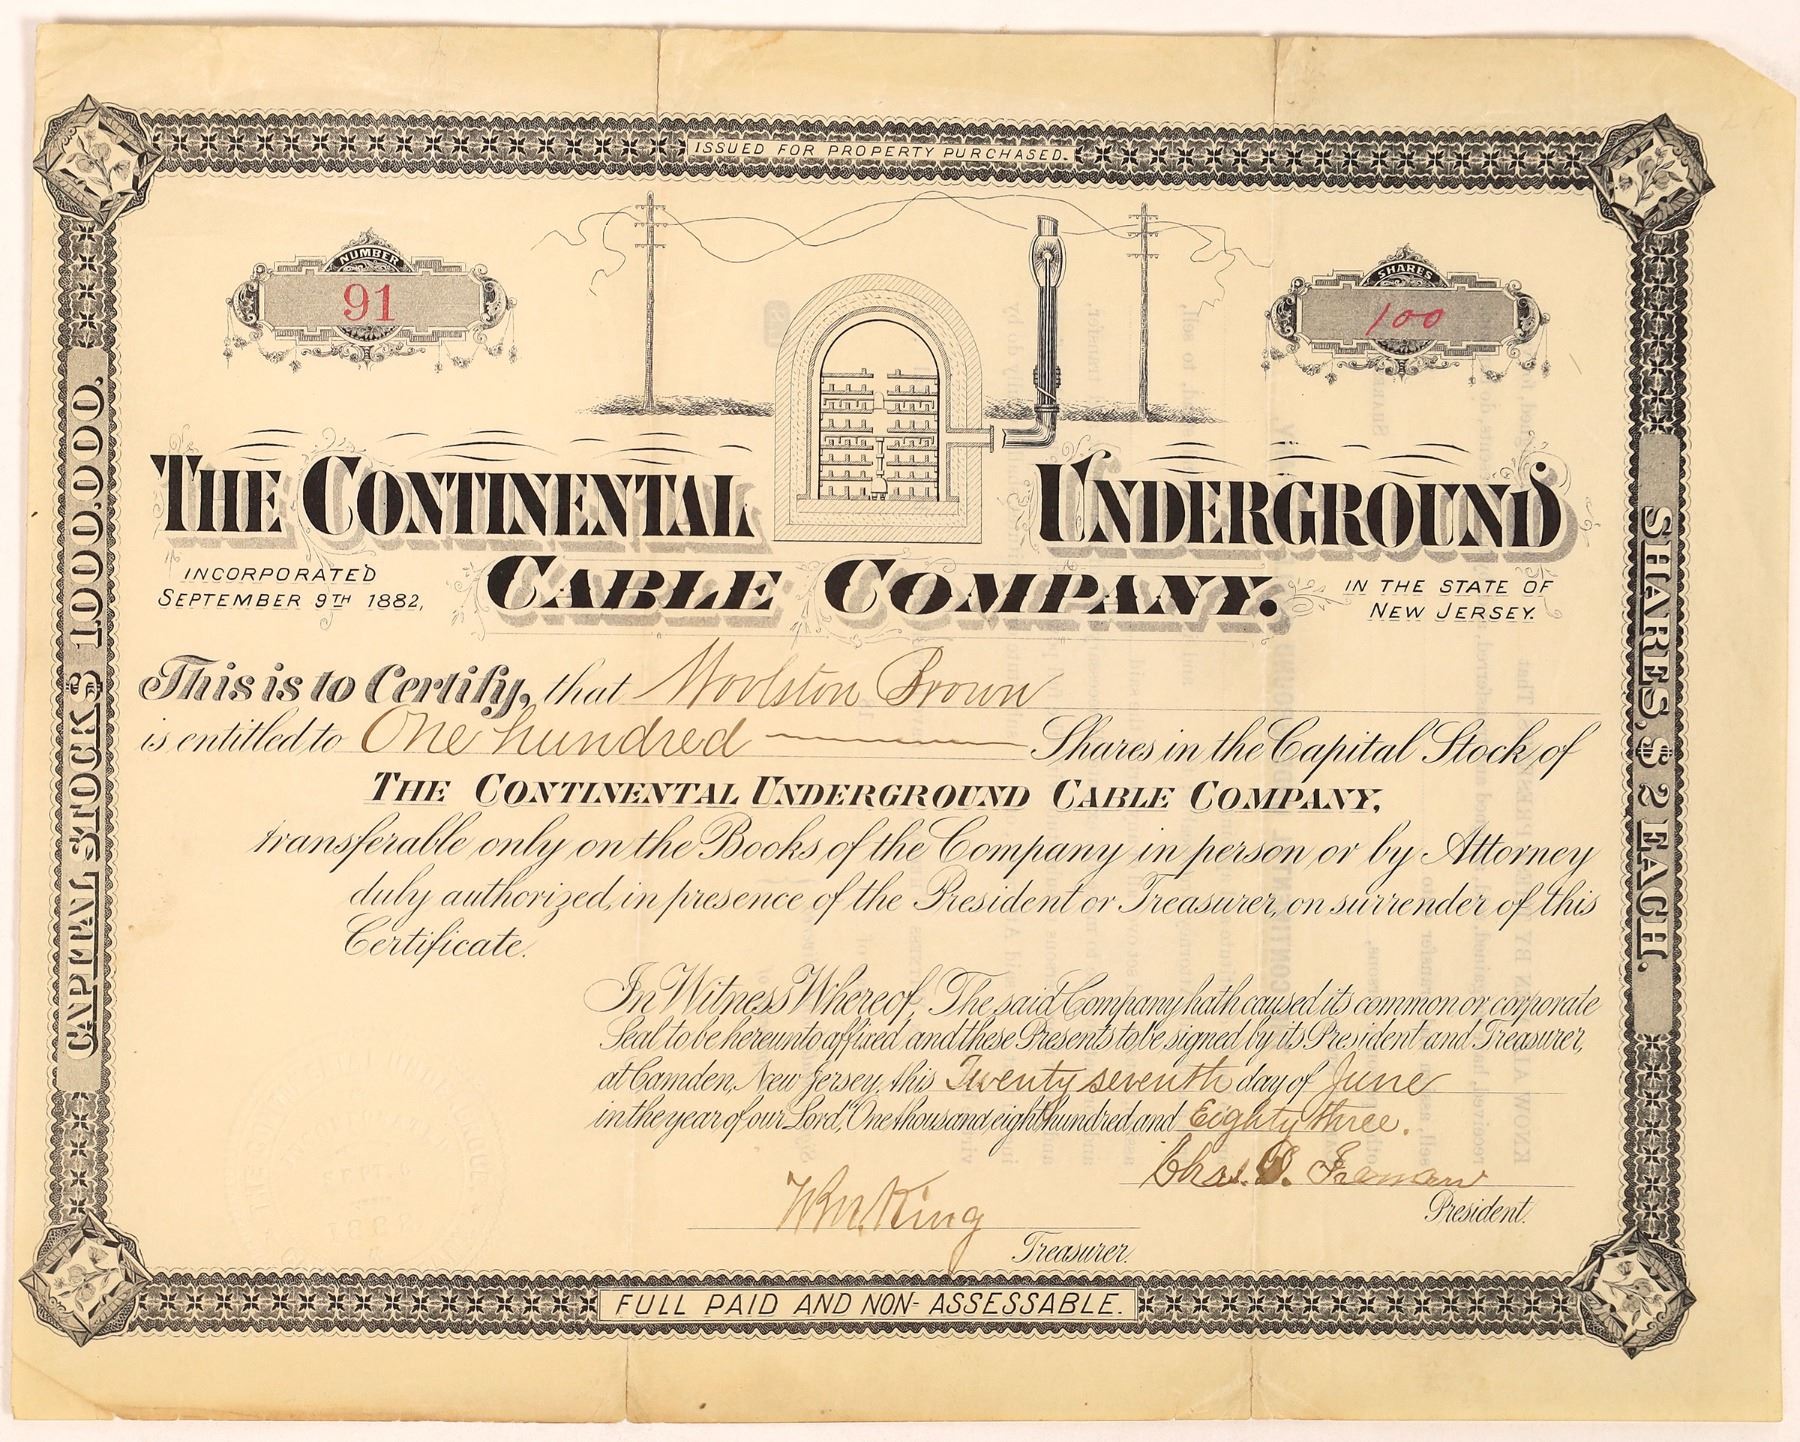 ISSUED FOR PROPERTY PURCHASED.
NUMBER
91
SHARES
100
THE CONTINENTAL UNDERGROUND
CABLE COMPANY.
INCORPORATED
SEPTEMBER 9TH 1882,
IN THE STATE OF
NEW JERSEY.
CAPITAL STOCK $ 10.000.000.
SHARES, $ 2 EACH.
This is to Certify, that Woolston Brown
is entitled to One hundred Shares in the Capital Stock of
THE CONTINENTAL UNDERGROUND CABLE COMPANY,
transferable only on the Books of the Company in person or by Attorney
duly authorized, in presence of the President or Treasurer, on surrender of this
Certificate.
In Witness Whereof, The said Company hath caused its common or corporate
Seal to be hereunto affixed and these Presents to be signed by its President and Treasurer,
at Camden, New Jersey, this Twenty seventh day of June
in the year of our Lord, One thousand eight hundred and Eighty three.
Chas. D.
President.
Wm. King
Treasurer.
FULL PAID AND NON-ASSESSABLE.